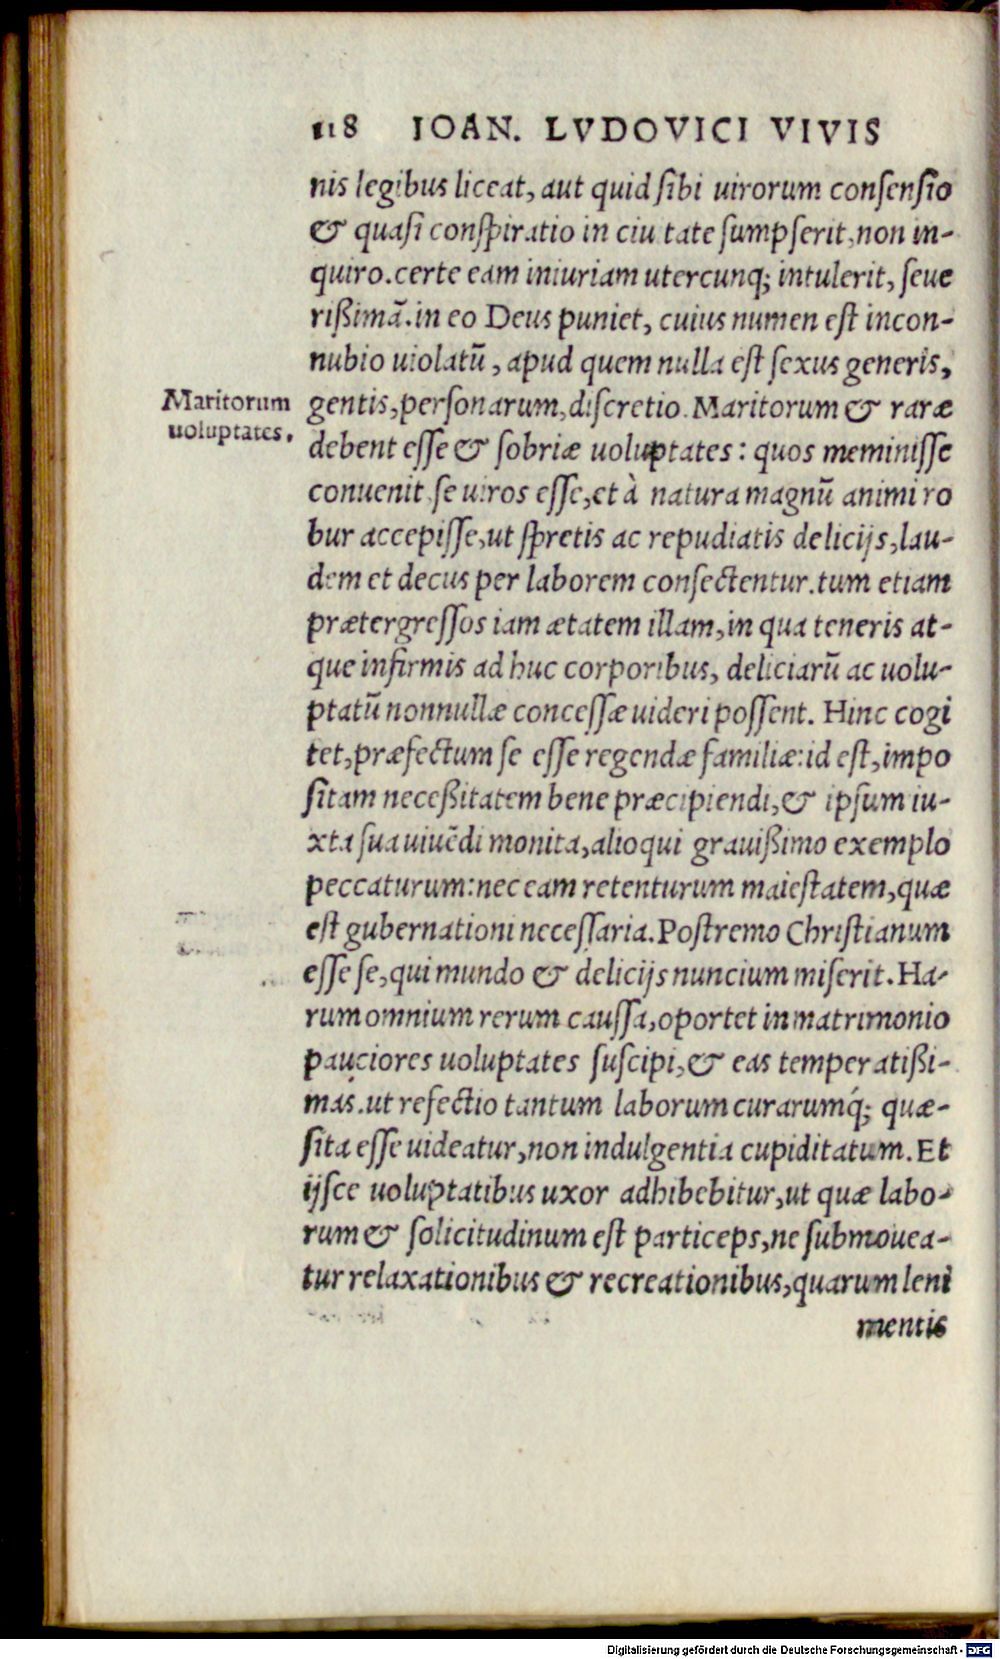 118 IOAN. LVDOVICI VIVIS
nis legibus liceat, aut quid ſibi uirorum conſenſio
& quaſi conſpiratio in ciuitate ſumpſerit, non in-
quiro. certe eam iniuriam utercunq; intulerit, ſeue
rißimā. in eo Deus puniet, cuius numen eſt in con-
nubio uiolatū, apud quem nulla eſt ſexus generis,
Maritorum
uoluptates.
gentis, perſonarum, diſcretio. Maritorum & raræ
debent eſſe & ſobriæ uoluptates: quos meminiſſe
conuenit ſe uiros eſſe, et à natura magnū animi ro
bur accepiſſe, ut ſpretis ac repudiatis delicijs, lau-
dem et decus per laborem conſectentur. tum etiam
prætergreſſos iam ætatem illam, in qua teneris at-
que infirmis ad huc corporibus, deliciarū ac uolu-
ptatū nonnullæ conceſſæ uideri poſſent. Hinc cogi
tet, præfectum ſe eſſe regendæ familiæ: id eſt, impo
ſitam neceßitatem bene præcipiendi, & ipſum iu-
xta ſua uiuēdi monita, alioqui grauißimo exemplo
peccaturum: nec eam retenturum maieſtatem, quæ
eſt gubernationi neceſſaria. Poſtremo Chriſtianum
eſſe ſe, qui mundo & delicijs nuncium miſerit. Ha-
rum omnium rerum cauſſa, oportet in matrimonio
pauciores uoluptates ſuſcipi, & eas temperatißi-
mas. ut refectio tantum laborum curarumq́; quæ-
ſita eſſe uideatur, non indulgentia cupiditatum. Et
ijſce uoluptatibus uxor adhibebitur, ut quæ labo-
rum & ſolicitudinum eſt particeps, ne ſubmouea-
tur relaxationibus & recreationibus, quarum leni
mentis
Digitalisierung gefördert durch die Deutsche Forschungsgemeinschaft - DFG